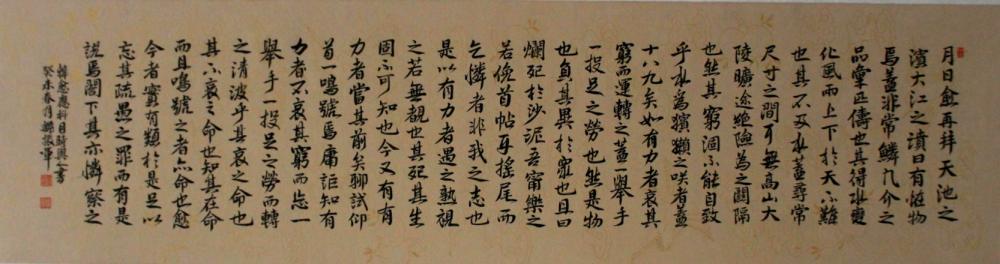 月日愈再拜天池之
濱大江之濆曰有怪物
焉蓋非常鱗凡介之
品彙匹儔也其得水變
化風雨上下於天不難
也其不及水蓋尋常
尺寸之間耳無高山大
陵曠途絕險為之關隔
也然其窮涸不能自致
乎水為獱獺之咲者蓋
十八九矣如有力者哀其
窮而運轉之蓋一舉手
一投足之勞也然是物
也負其異於眾也且曰
爛死於沙泥吾甯樂之
若俛首帖耳搖尾而
乞憐者非我之志也
是以有力者遇之熟視
之若無覩也其死其生
固不可知也今又有有
力者當其前矣聊試仰
首一鳴號焉庸詎知有
力者不哀其窮而忘一
舉手一投足之勞而轉
之清波乎其哀之命也
其不哀之命也知其在命
而且鳴號之者亦命也愈
今者實有類於是是以
忘其疏愚之罪而有是
說焉閣下其亦憐察之
韓愈應科目時與人書
癸未春月